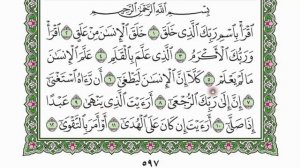 بِسْمِ ٱللَّهِ ٱلرَّحْمَـٰنِ ٱلرَّحِيمِ
ٱقْرَأْ بِٱسْمِ رَبِّكَ ٱلَّذِى خَلَقَ ۝١ خَلَقَ ٱلْإِنسَـٰنَ مِنْ عَلَقٍ ۝٢ ٱقْرَأْ
وَرَبُّكَ ٱلْأَكْرَمُ ۝٣ ٱلَّذِى عَلَّمَ بِٱلْقَلَمِ ۝٤ عَلَّمَ ٱلْإِنسَـٰنَ
مَا لَمْ يَعْلَمْ ۝٥ كَلَّآ إِنَّ ٱلْإِنسَـٰنَ لَيَطْغَىٰٓ ۝٦ أَن رَّءَاهُ ٱسْتَغْنَىٰٓ
۝٧ إِنَّ إِلَىٰ رَبِّكَ ٱلرُّجْعَىٰٓ ۝٨ أَرَءَيْتَ ٱلَّذِى يَنْهَىٰ ۝٩ عَبْدًا
إِذَا صَلَّىٰٓ ۝١٠ أَرَءَيْتَ إِن كَانَ عَلَى ٱلْهُدَىٰٓ ۝١١ أَوْ أَمَرَ بِٱلتَّقْوَىٰٓ ۝١٢
٥٩٧